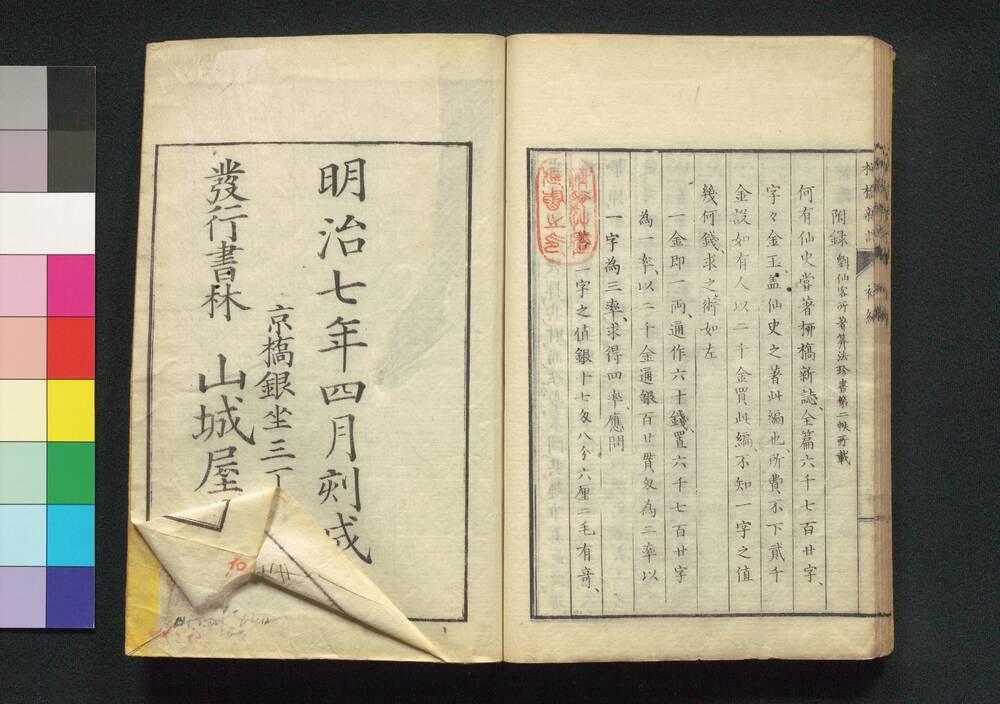 附録 劉仙客所著算法珍書第二帙所載
何有仙史嘗著柳橋新誌、全篇六千七百廿字、
字々金玉、盖仙史之著此編也、所費不下貳千
金設如有人以二千金買此編、不知一字之値
幾何錢、求之術如左
一金即一両、通作六十錢、置六千七百廿字
為一率、以二千金通銀百廿貫匁為二率以
一字為三率、求得四率應問
答一字之値銀十七匁八分六厘二毛有奇、
明治七年四月刻成
京橋銀坐三丁
發行書林 山城屋